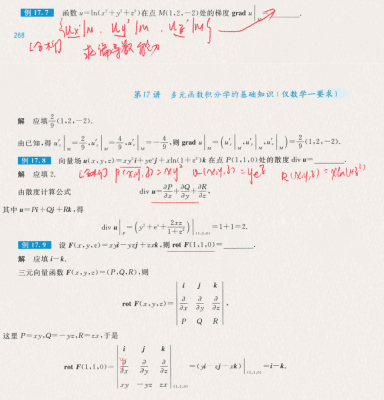 例 17.7 函数 u=ln(x²+y²+z²)在点 M(1,2,-2)处的梯度 grad u|_M=______.
{u'x|M, u'y|M, u'z|M}
268
求偏导数能力
第17讲 多元函数积分学的基础知识(仅数学一要求)
解 应填 2/9(1,2,-2).
由已知,得 u'_x|_M=2/9, u'_y|_M=4/9, u'_z|_M=-4/9,则 grad u|_M=(u'_x|_M, u'_y|_M, u'_z|_M)=2/9(1,2,-2).
例 17.8 向量场 u(x,y,z)=xy²i+ye^z j+xln(1+z²)k 在点 P(1,1,0)处的散度 div u=______.
解 应填 2. P(x,y,z)=xy² Q(x,y,z)=ye^z R(x,y,z)=xln(1+z²)
由散度计算公式
div u=∂P/∂x+∂Q/∂y+∂R/∂z,
其中 u=Pi+Qj+Rk,得
div u|_P=(y²+e^z+2xz/(1+z²))|_(1,1,0)=1+1=2.
例 17.9 设 F(x,y,z)=xyi-yzj+zxk,则 rot F(1,1,0)=______.
解 应填 i-k.
三元向量函数 F(x,y,z)=(P,Q,R),则
i j k
rot F(x,y,z)=| ∂/∂x ∂/∂y ∂/∂z |,
P Q R
这里 P=xy,Q=-yz,R=zx,于是
i j k
rot F(1,1,0)=| ∂/∂x ∂/∂y ∂/∂z | =(yi-zj-xk)|_(1,1,0)=i-k.
xy -yz zx |_(1,1,0)